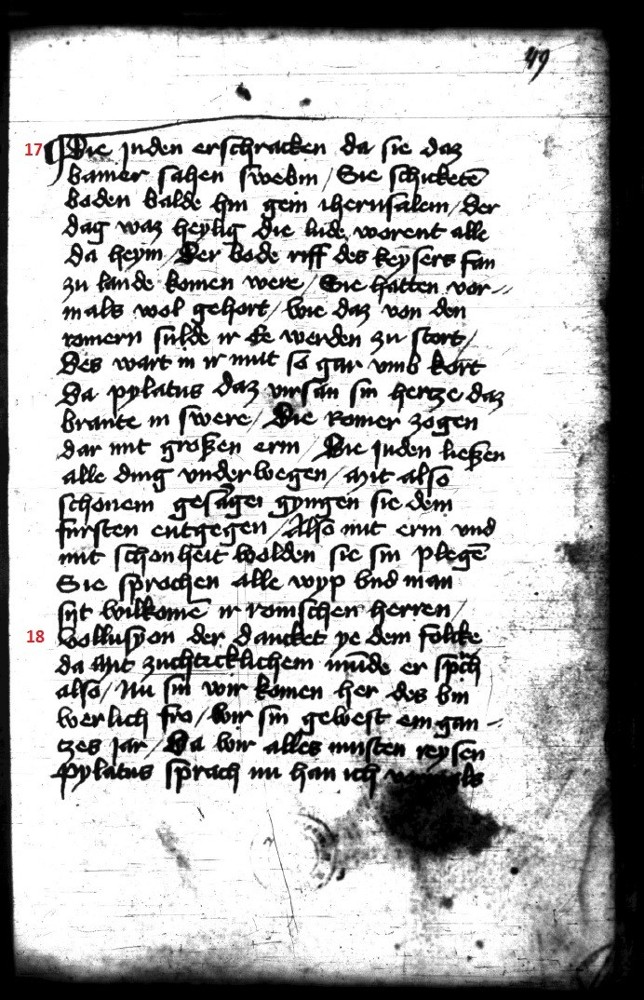 49
17 Die juden erschracken da sie daz
baner sahen swebin / Sie schicketē
boden balde hin gein iherusalem / Der
dag waz heylig die lude worent alle
da heym / Der bode riff des keysers fan
zu lande komen were / Sie hatten vor-
mals wol gehort / wie daz von den
romern sulde ir ee werden zu stort /
Des wart in ir mut so gar vmb kort
Da pylatus daz virsan sin hertze daz
brante in swere / Die Romer zogen
dar mit großen ern / Die juden ließen
alle ding vnderwegen / mit also
schonem gesange gyngen sie dem
fursten entgegen / Also mit ern vnd
mit schonheit wolden sie sin plegē
Sie sprochen alle wyp vnd man
sijt wilkomē ir romschen herren /
18 wollusyon der dancket ye dem folcke
da mit zuchticklichem mūde er sprch
also / Nu sin wir komen her des bin
werlich fro / wir sin gewest ein gan-
tzes jar / Da wir alles musten reysen
Pylatus sprach nu han ich